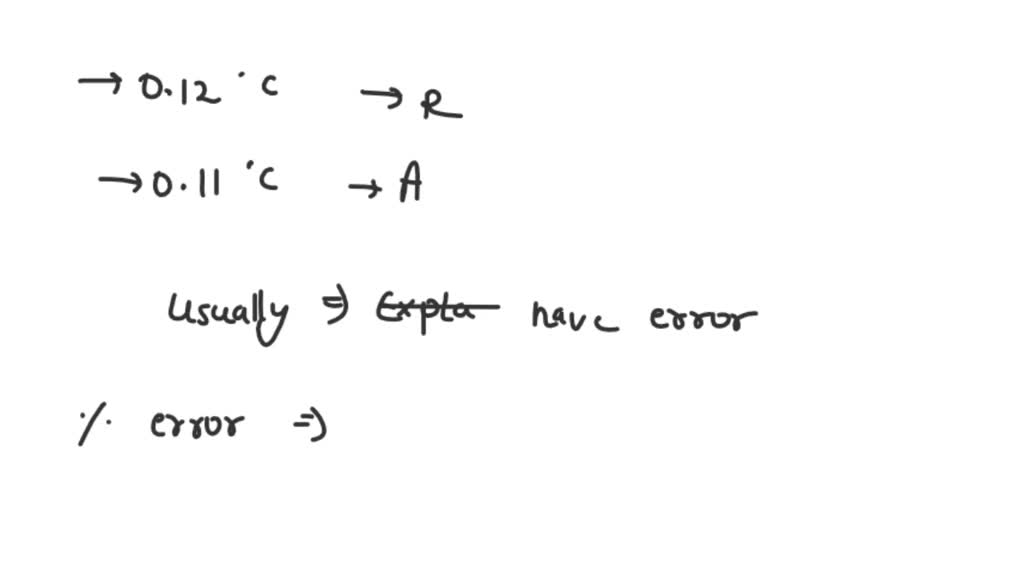 → 0.12 °C → R
→ 0.11 °C → A
Usually ⇒ Expta have error
% error ⇒